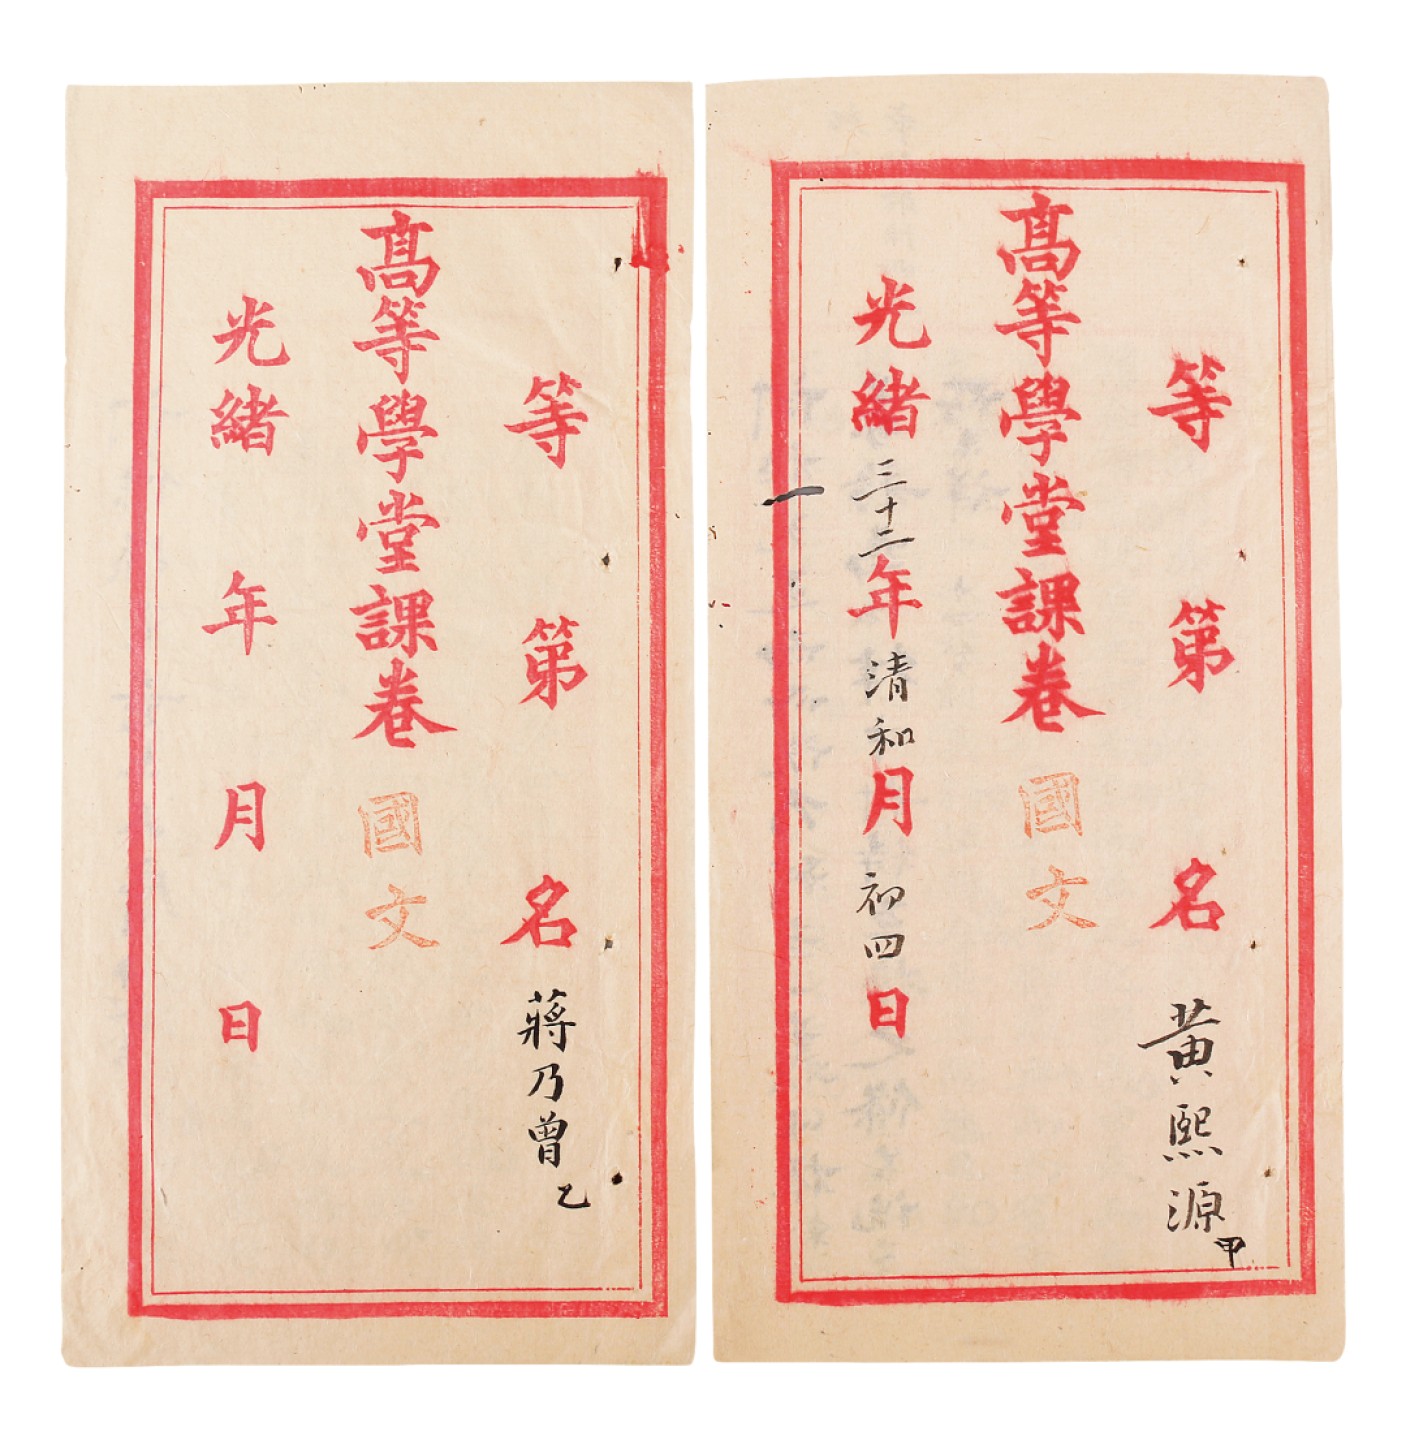 等第名蔣乃曾乙
高等學堂課卷國文
光緒年月日
等第名黃熙源甲
高等學堂課卷國文
光緒三十二年清和月初四日